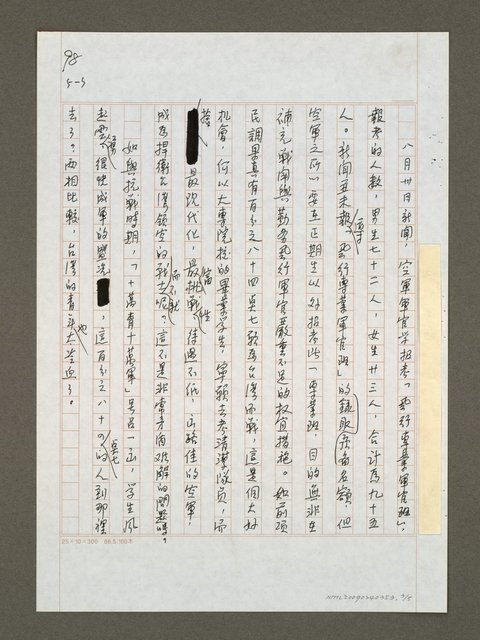 98
5-5
八月卅日新聞,空軍軍官學招考「飛行專業軍官班」,
報考的人數,男生七十二人,女生廿三人,合計為九十五
人。新聞並未報導「飛行專業軍官班」的錄取名額,但
空軍之所以要在正期生以外招考此一專業班,目的無非在
補充戰鬥與勤務飛行軍官嚴重不足的權宜措施。如前項
民調果真有百分之八十四點七願為台灣而戰,這是個大好
機會,何以大專院校的畢業學生,寧願去考清潔隊員,而
最現代化,最富挑戰性,待遇不低,的空軍,
成為捍衛台灣領空的戰士呢?這不是非常矛盾難解的問題嗎。
如與抗戰時期,「十萬青年十萬軍」號召一出,學生風
起雲湧很快成軍的盛況,這百分之八十四點七的人到那裡
去了。兩相比較,台灣的青年也太冷血了。
25×10=300 86.5.100本
NMTL20090240353. 5/5